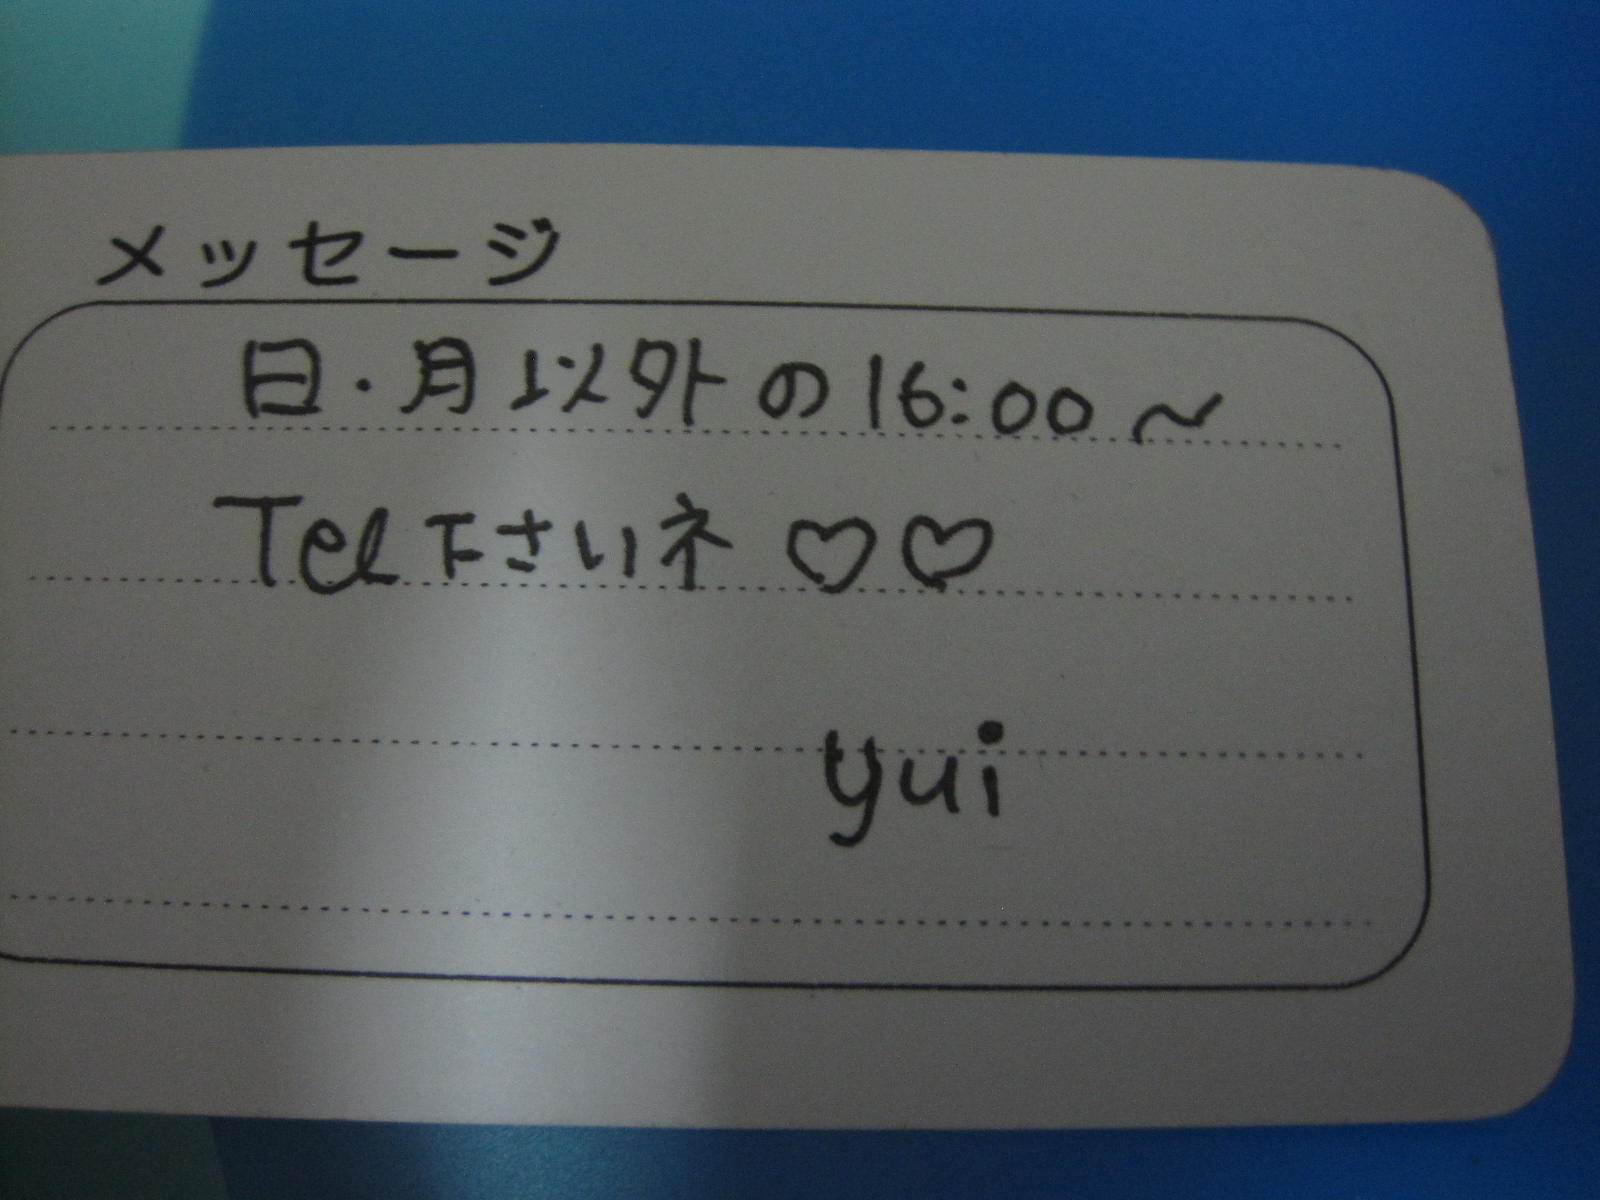 メッセージ
日・月以外の16:00~
Tel下さいネ♡♡
yui